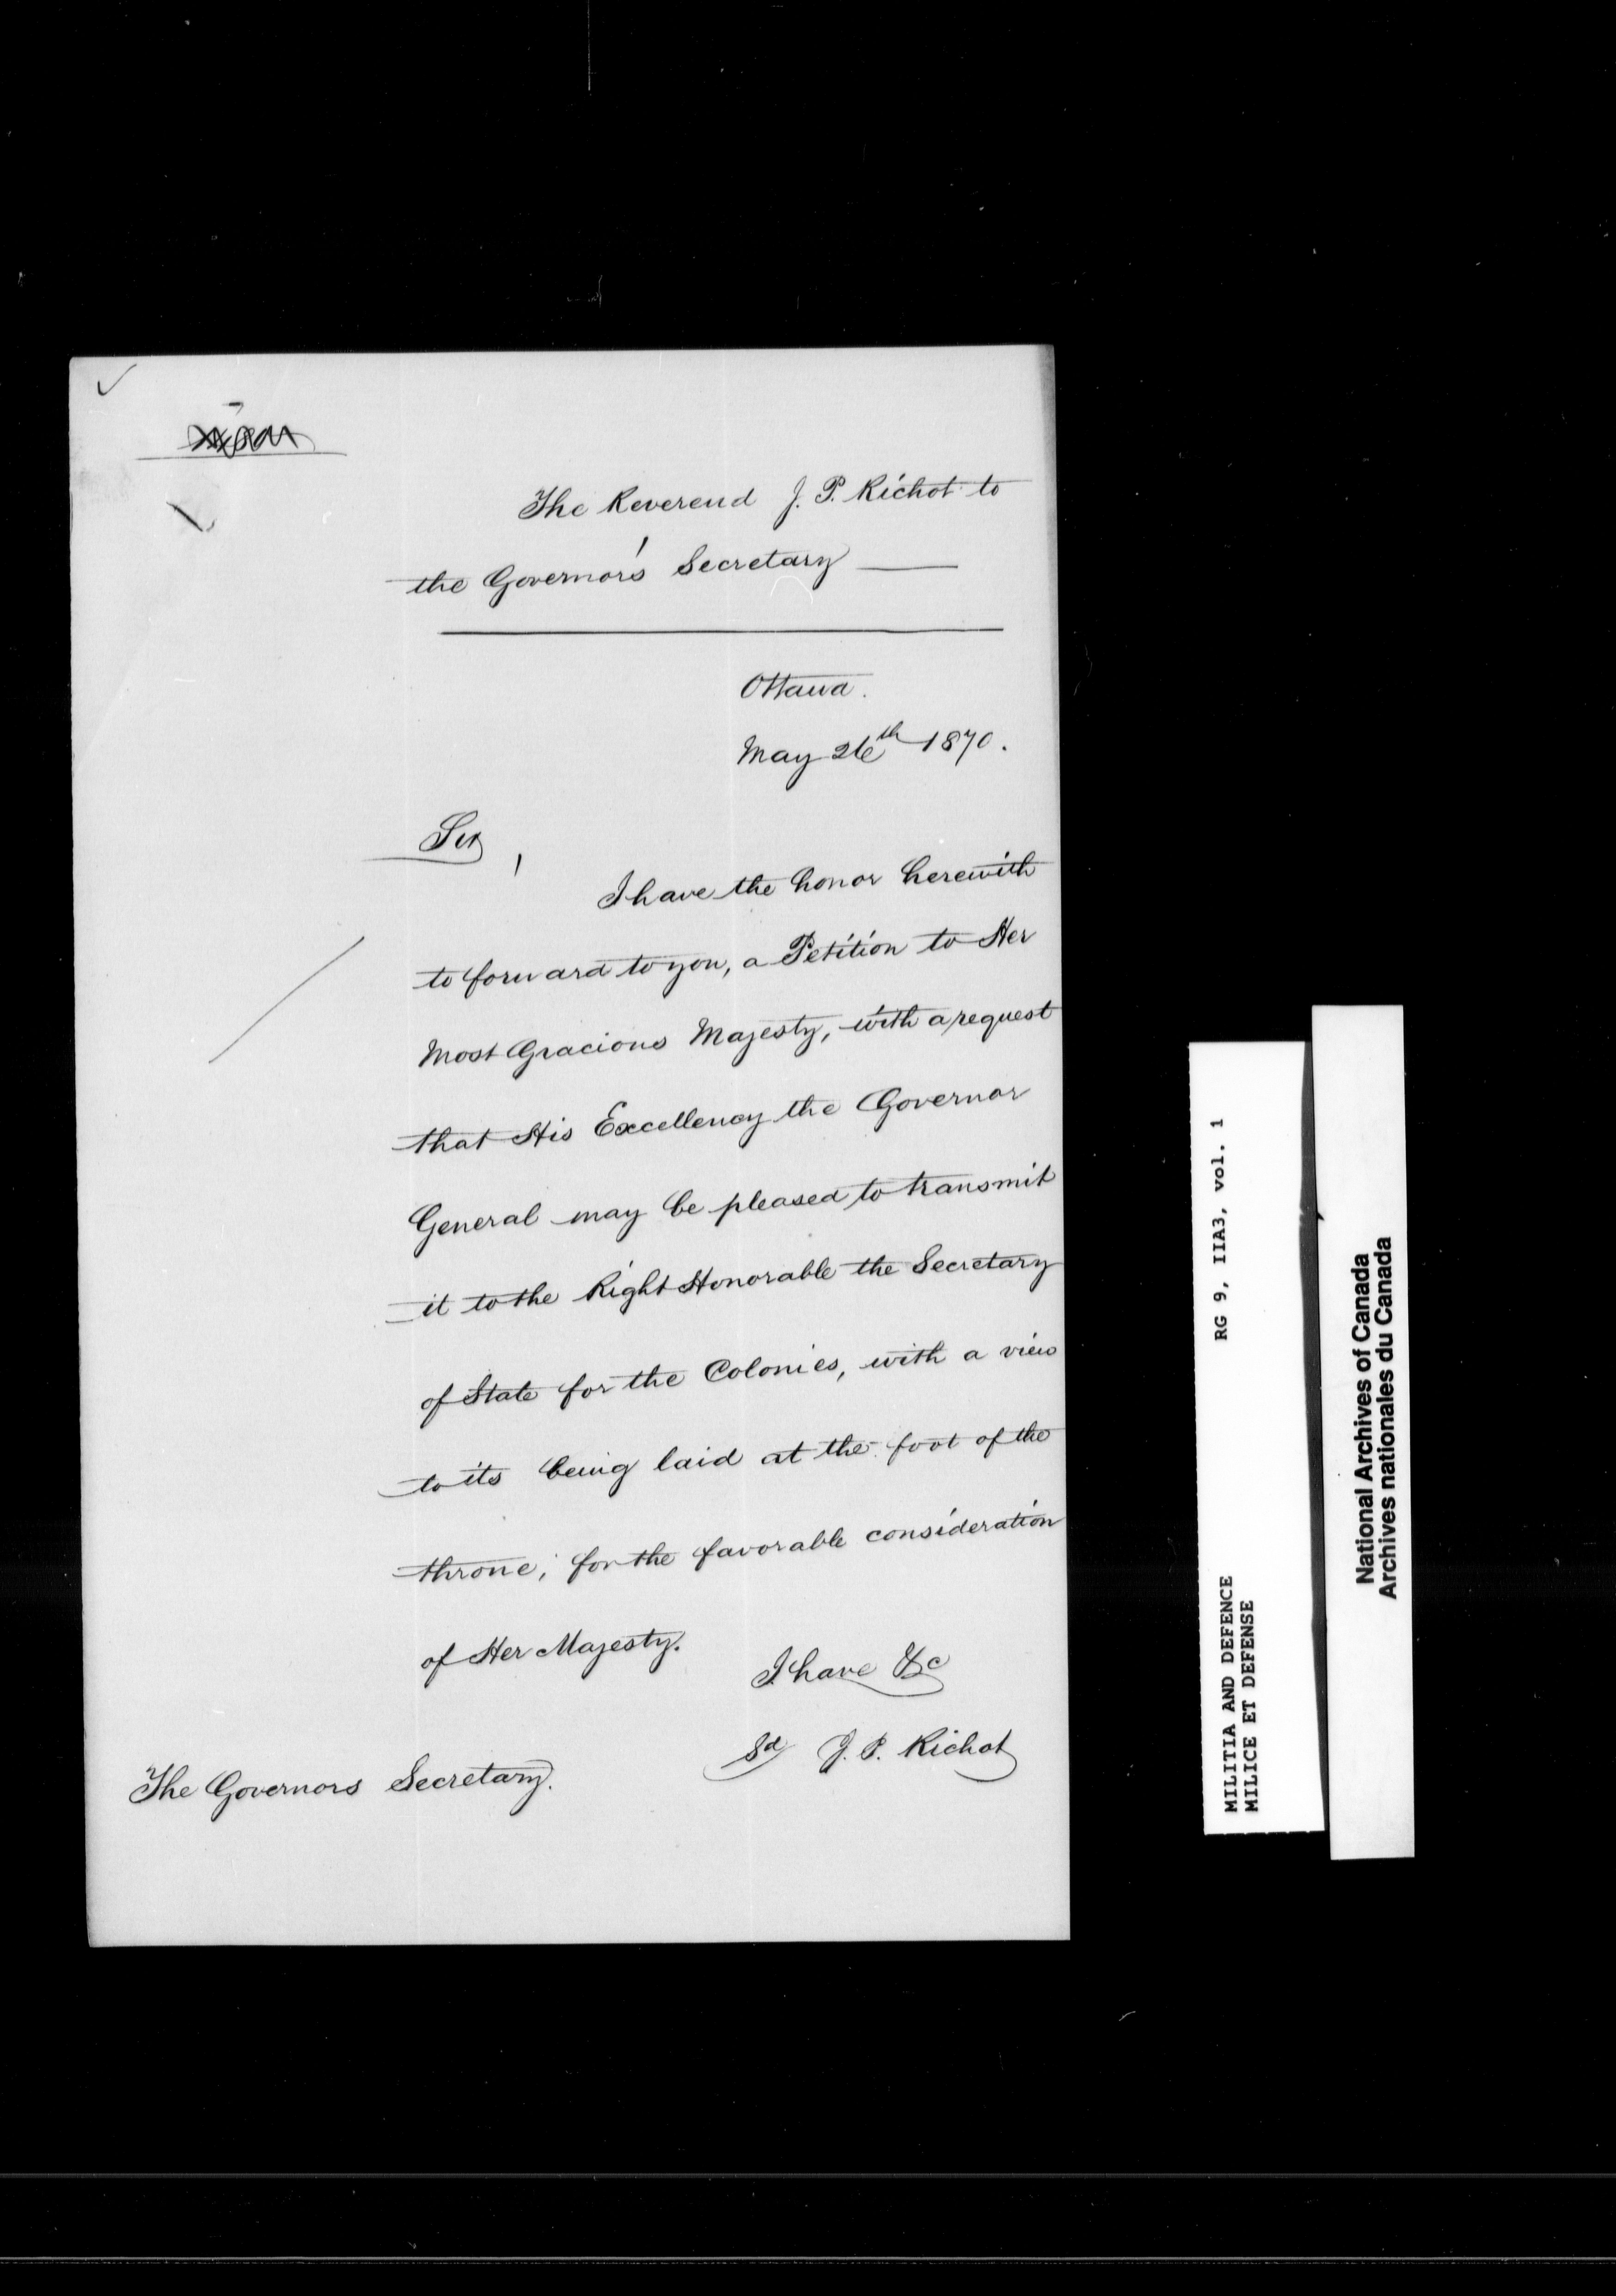 The Reverend J. P. Richot to
the Governor's Secretary
Ottawa.
May 26th 1870.
Sir,
I have the honor herewith
to forward to you, a Petition to Her
Most Gracious Majesty, with a request
that His Excellency the Governor
General may be pleased to transmit
it to the Right Honorable the Secretary
of State for the Colonies, with a view
to its being laid at the foot of the
throne; for the favorable consideration
of Her Majesty.
I have &c
Sd J. P. Richot
The Governors Secretary.
MILITIA AND DEFENCE RG 9, IIA3, vol. 1
MILICE ET DEFENSE
National Archives of Canada
Archives nationales du Canada